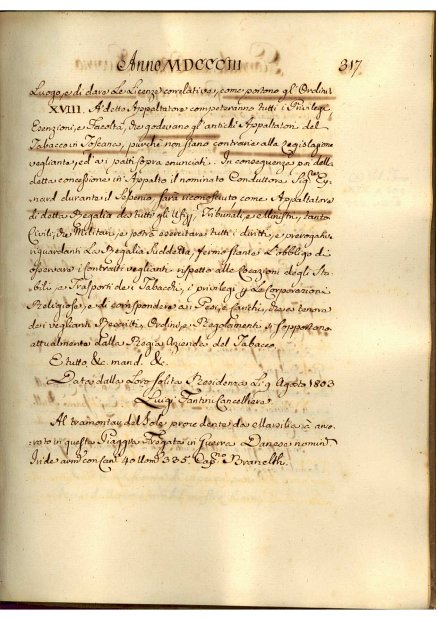 Anno MDCCCIII 317
Luogo, e di dare le Licenze correlative, come portono gl'Ordini
XVIII. A detto Appaltatore competeranno tutti i Privilegi
Esenzioni, e Facoltà, che godevano gl'antichi Appaltatori del
Tabacco in Toscana, purché non siano contrarie alla Legislazione
vegliante, ed a i patti sopra enunciati. In conseguenza poi della
detta concessione in Appalto il nominato Conduttore Sig.re
nard durante il sarà riconosciuto come Appaltatore
di detta Regalia da tutti gli Tribunali, e Ministri, tanto
Civili, che Militari, e potrà esercitare tutti i diritti, e prerogative
riguardanti La Regalia Suddetta, fermo stante L'obbligo di
osservare i Contratti veglianti rispetto alle Locazioni degli Sta-
bili, e Trasporti dei Tabacchi, i privilegi Le Corporazioni
Religiose, e di corrispondere a i Pesi, e Carichi, che a tenore
dei veglianti Rescritti, Ordini, e Regolamenti si sopportano
attualmente dalla Regia Azienda del Tabacco
E tutto &c. mand. &
Data dalla Loro solita Residenza Li 9 Agosto 1803
Luigi Fantini Cancelliere
Al tramontar del Sole procedente da Marsilia à anco-
rato in questa Piaggia Fregata in Guerra Danese nomin.
Iride con Can. 40 Uom. 335 Cap.no